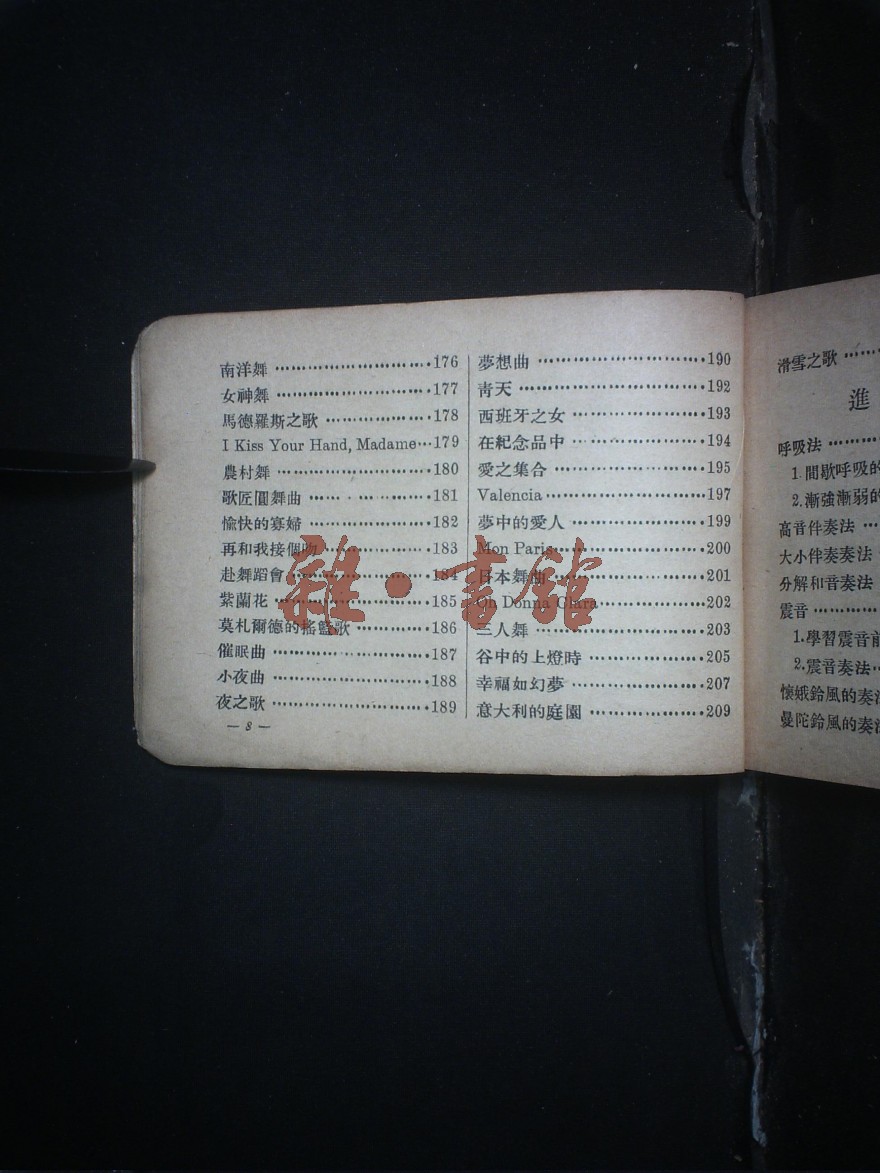 南洋舞 ························176
女神舞 ························177
馬德羅斯之歌 ················178
I Kiss Your Hand, Madame···179
農村舞 ························180
歌匠圓舞曲 ···················181
愉快的寡婦 ···················182
再和我接個吻 ················183
赴舞蹈會 ······················184
紫蘭花 ························185
莫札爾德的搖籃歌 ··········186
催眠曲 ························187
小夜曲 ························188
夜之歌 ························189
— 8 —
夢想曲 ························190
青天 ···························192
西班牙之女 ···················193
在紀念品中 ···················194
愛之集合 ······················195
Valencia ·······················197
夢中的愛人 ···················199
Mon Paris ·····················200
日本舞曲 ······················201
Oh Donna Clara ··············202
三人舞 ························203
谷中的上燈時 ················205
幸福如幻夢 ···················207
意大利的庭園 ················209
滑雪之歌 ····
進
呼吸法 ·······
1.間歇呼吸的
2.漸強漸弱的
高音伴奏法 ·
大小伴奏奏法 ·
分解和音奏法 ·
震音 ·········
1.學習震音前
2.震音奏法 ··
懷娥鈴風的奏法
曼陀鈴風的奏法
雜·書館